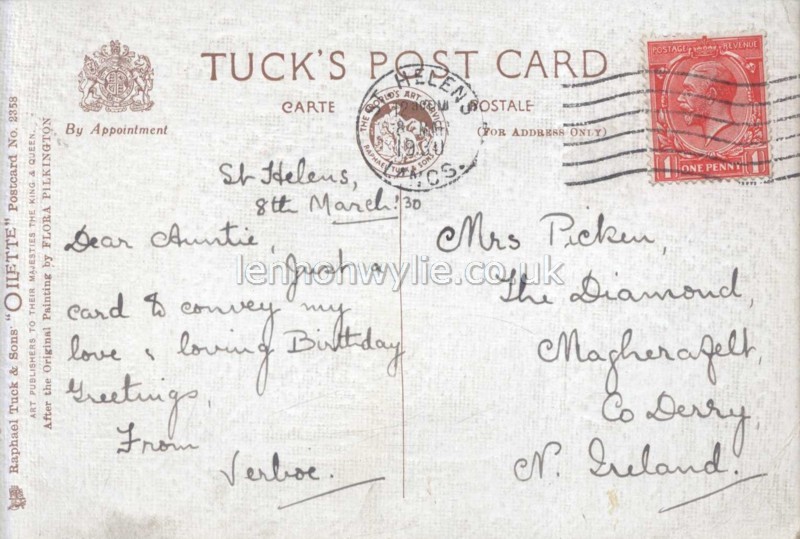 TUCK'S POST CARD
CARTE POSTALE
By Appointment
(FOR ADDRESS ONLY)
ST HELENS
LANCS.
THE WORLD'S ART SERVICE
RAPHAEL TUCK & SONS LTD
POSTAGE REVENUE
1 ONE PENNY 1
Raphael Tuck & Sons' "OILETTE" Postcard No. 2358
ART PUBLISHERS TO THEIR MAJESTIES THE KING & QUEEN.
After the Original Painting by FLORA PILKINGTON
St Helens,
8th March '30
Dear Auntie,
Just a
card to convey my
love & loving Birthday
Greetings,
From
Mrs Picken,
The Diamond,
Magherafelt,
Co Derry,
N. Ireland.
lennonwylie.co.uk